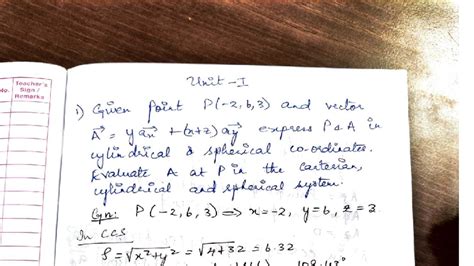 No.
Teacher's
Sign /
Remarks
Unit - I
1) Given point P(-2,6,3) and vector
A = y ax + (x+z) ay express P & A in
cylindrical & spherical co-ordinates.
Evaluate A at P in the cartesian,
cylinderical and spherical system.
Gvn: P(-2, 6, 3) ⇒ x=-2, y=6, z=3
In CCS
ρ = √x²+y² = √4+32 = 6.32